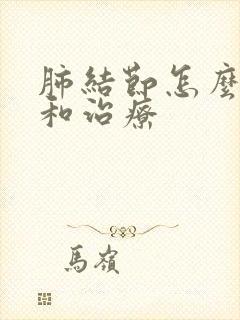 肺結節怎麼
和治療
馬嶺